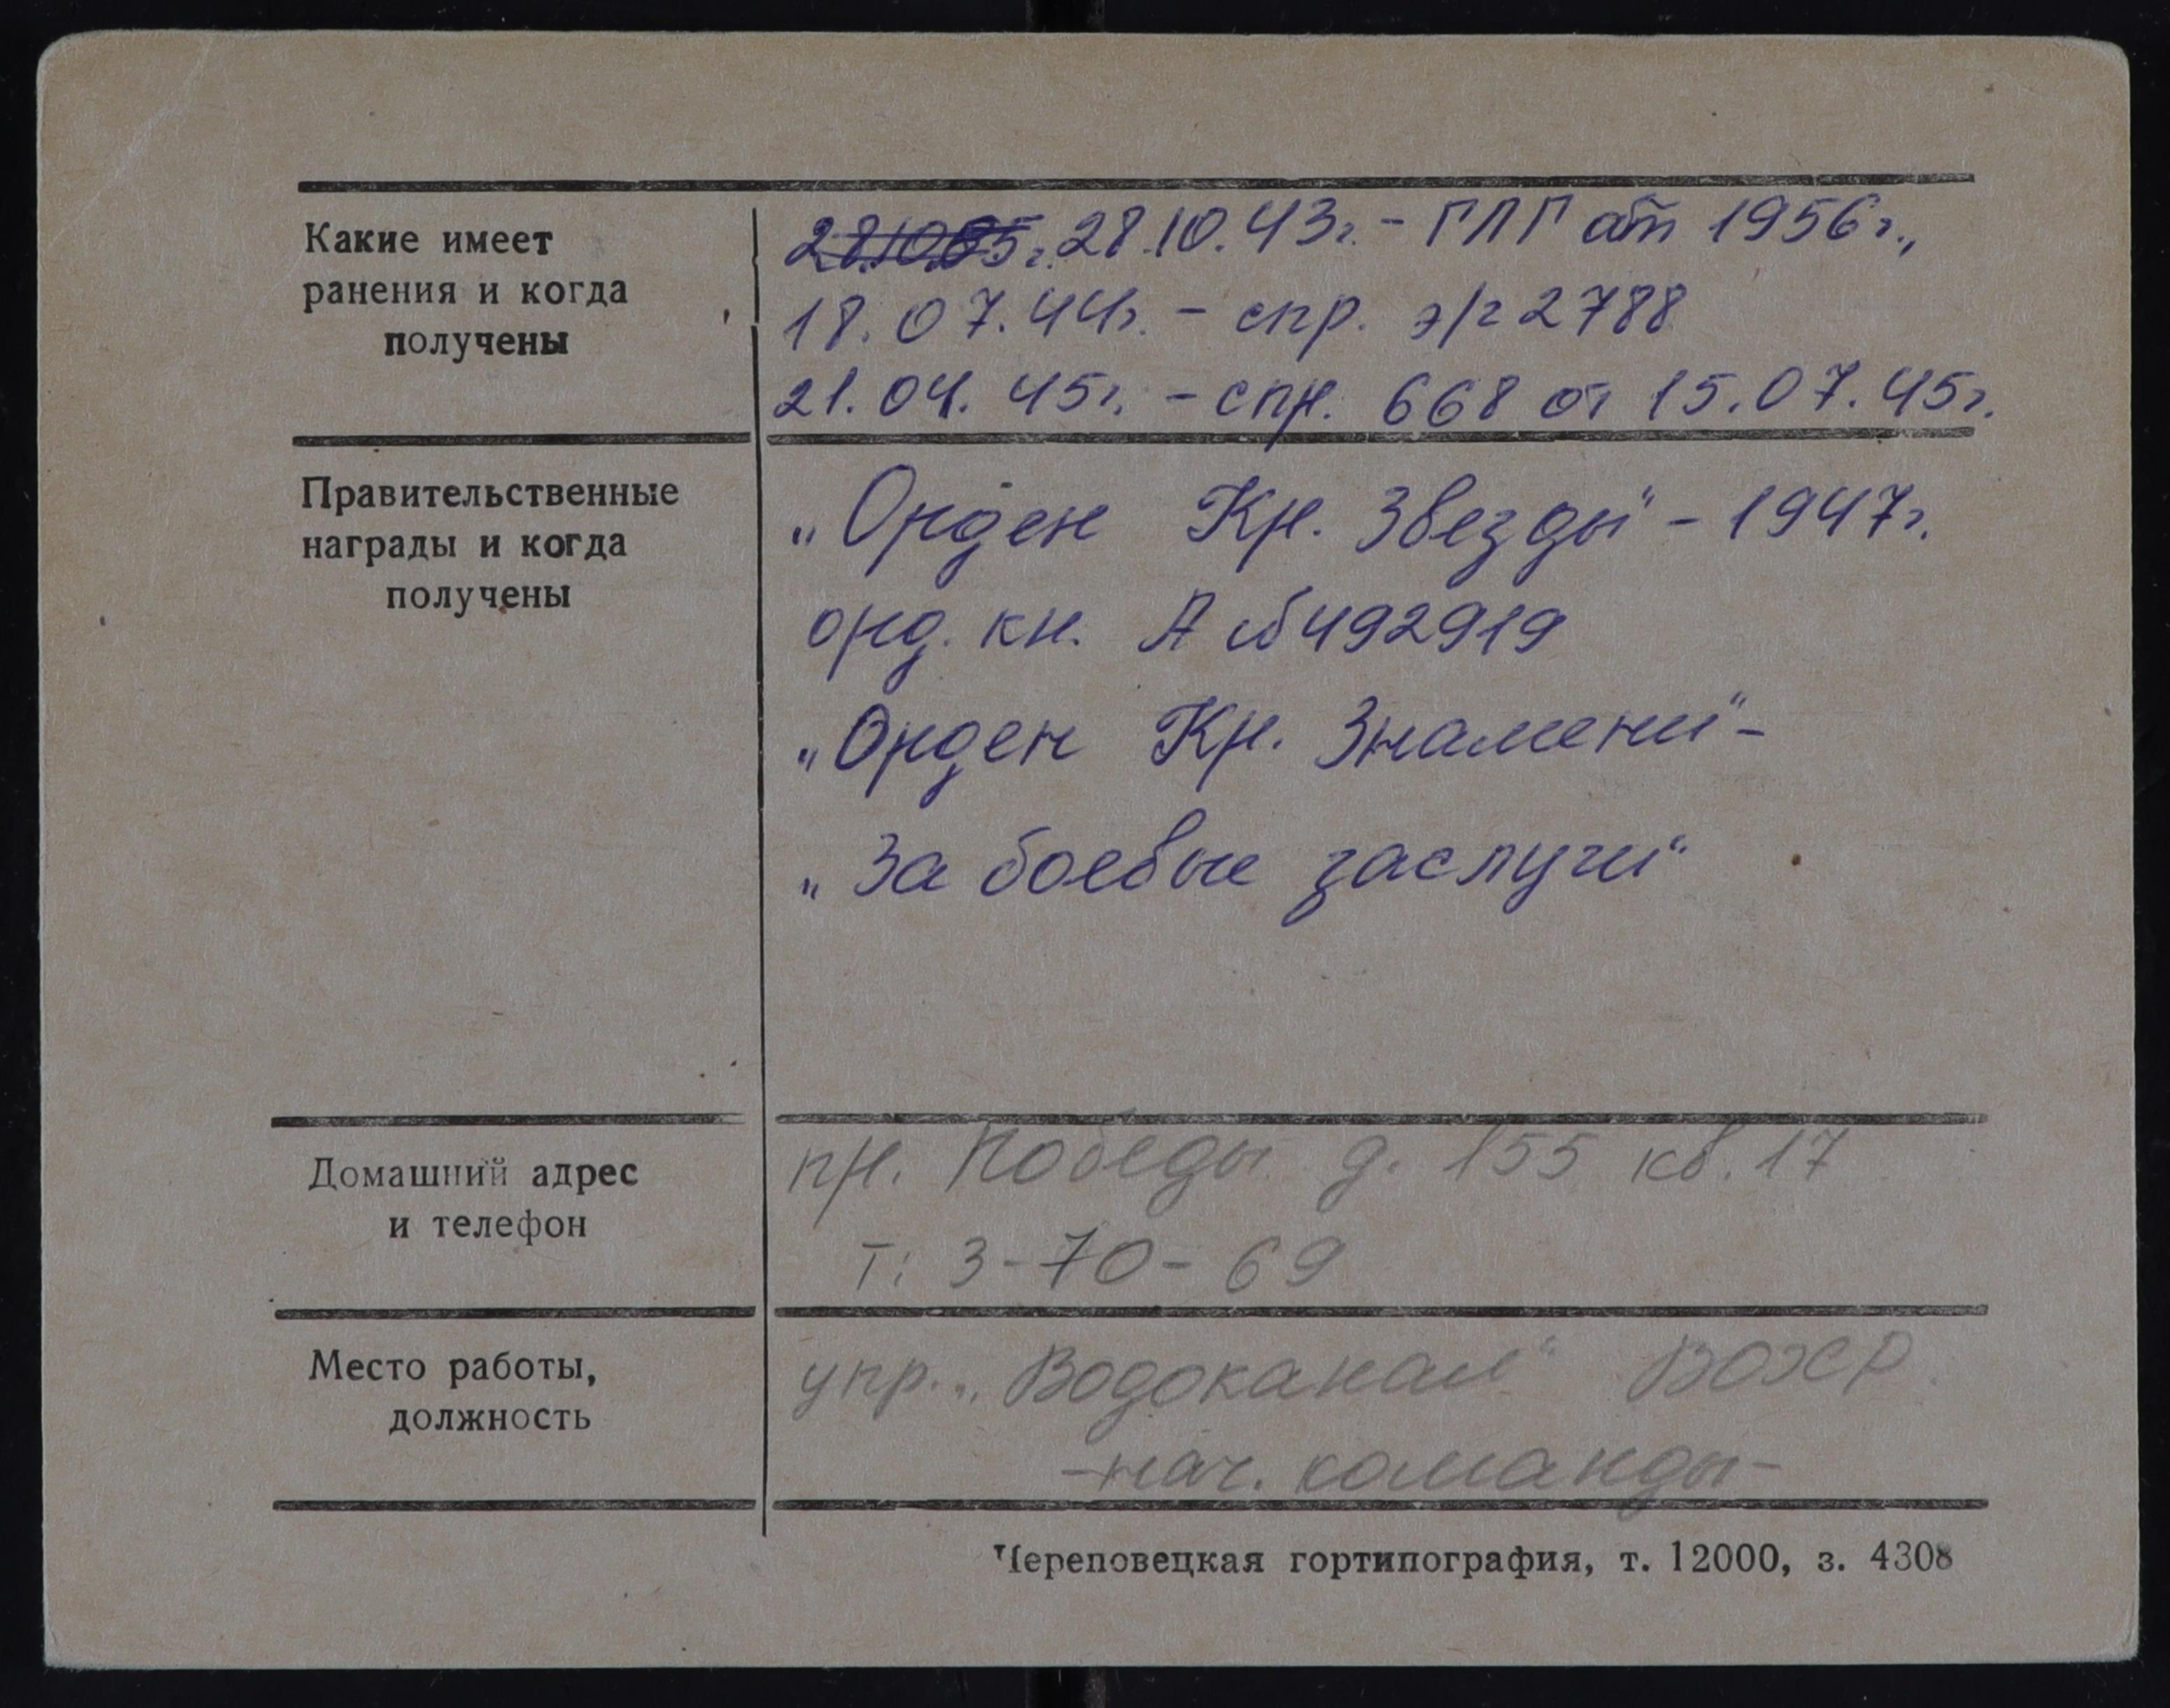 Какие имеет
ранения и когда
получены
28.10.43г. - ГЛГ от 1956г.,
18.07.44г. - спр. э/г 2788
21.04.45г. - спр. 668 от 15.07.45г.
Правительственные
награды и когда
получены
„Орден Кр. Звезды“ - 1947г.
орд. кн. А №492919
„Орден Кр. Знамени“ -
„За боевые заслуги“
Домашний адрес
и телефон
пр. Победы д. 155 кв. 17
Т: 3-70-69
Место работы,
должность
упр. „Водоканал“ ВОХР
- нач. команды -
Череповецкая гортипография, т. 12000, з. 4308